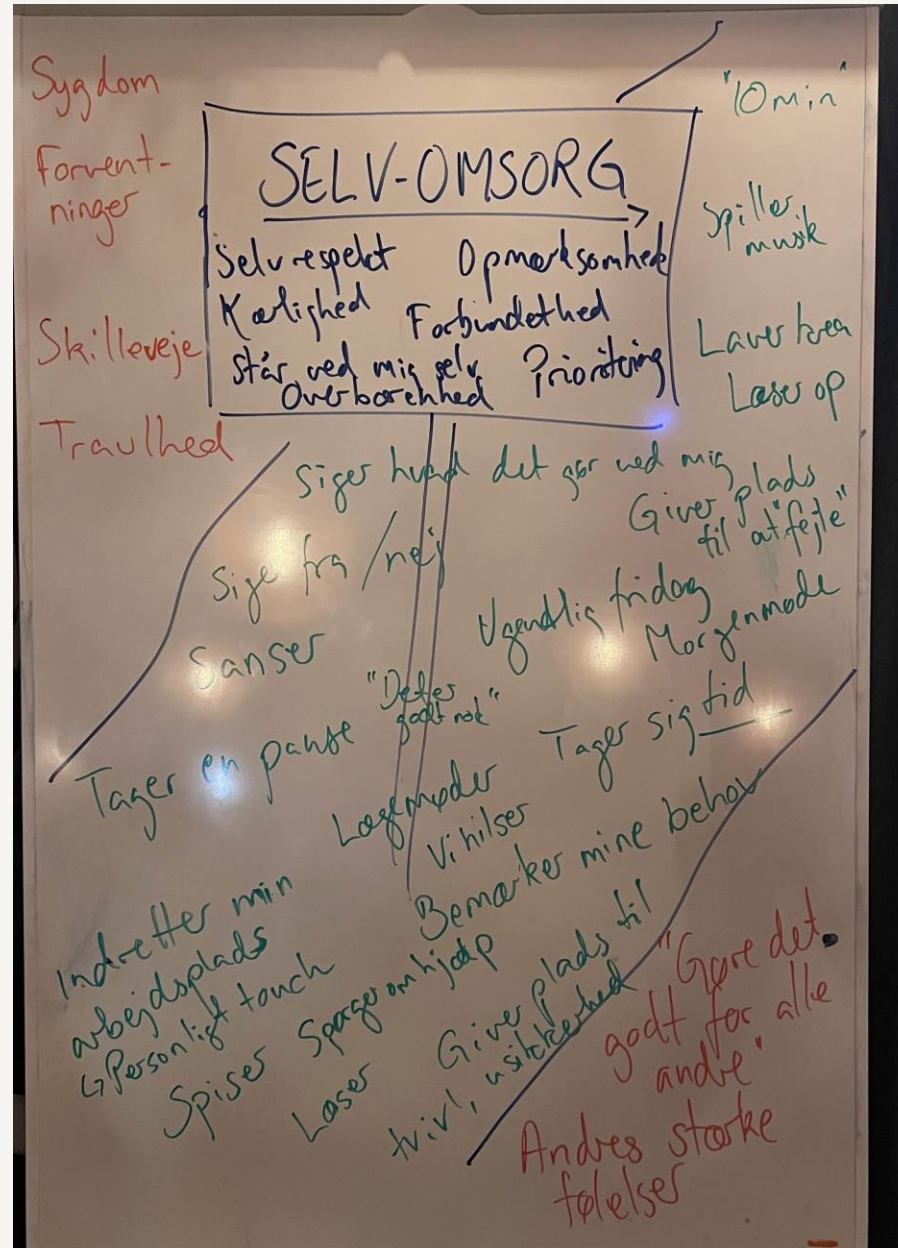 Sygdom
Forvent-
ninger
Skilleveje
Travlhed
SELV-OMSORG
Selvrespekt Opmærksomhed
Kærlighed Forbundethed
Står ved mig selv Prioritering
Overbærenhed
"10 min"
Spiller
musik
Laver krea
Læser op
Siger hvad det gør ved mig
Giver plads
til at "fejle"
Sige fra / nej
Ugentlig fridag
Morgenmøde
Sanser
"Det er
godt nok"
Tager en pause
Tager sig tid
Lægemøder
Vi hilser
Bemærker mine behov
Indretter min
arbejdsplads
↳ Personligt touch
Spiser Spørger om hjælp
Læser Giver plads til
tvivl, usikkerhed
"Gøre det
godt for alle
andre"
Andres stærke
følelser